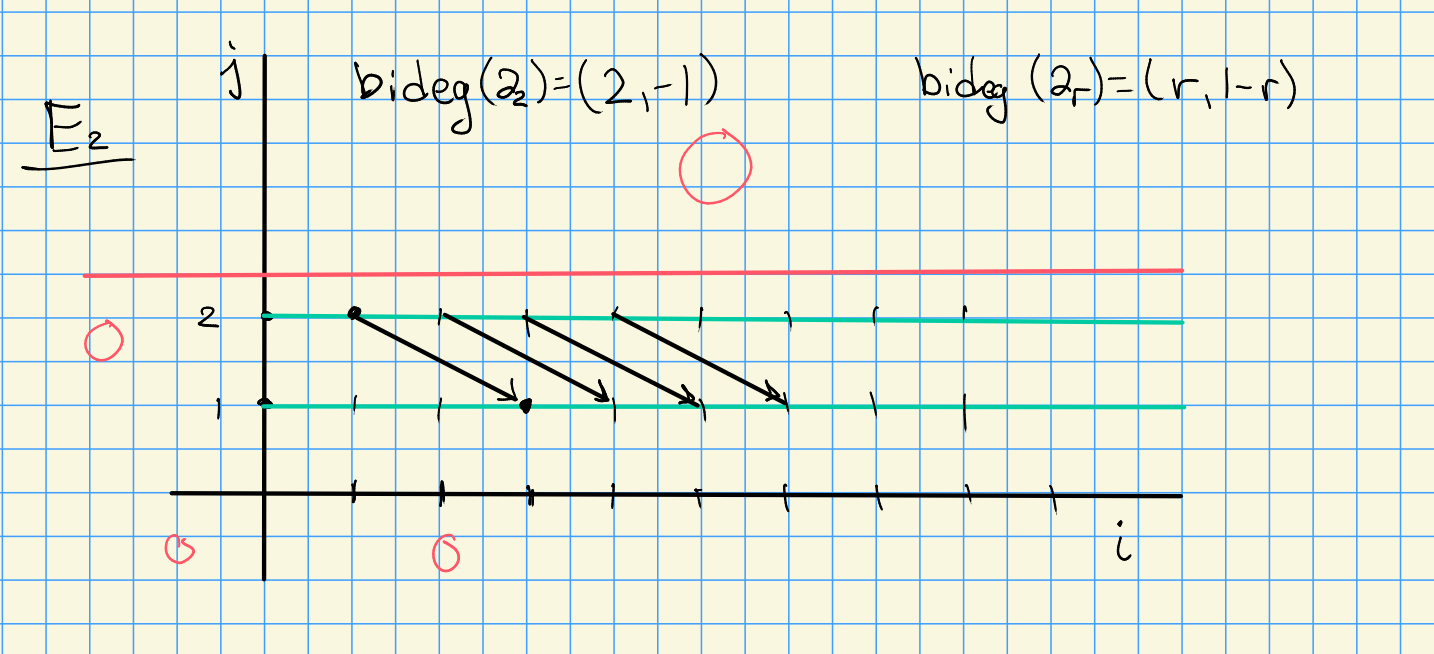 j
bideg(∂₂)=(2,-1)
bideg(∂ᵣ)=(r,1-r)
E₂
0
2
0
1
0
0
i